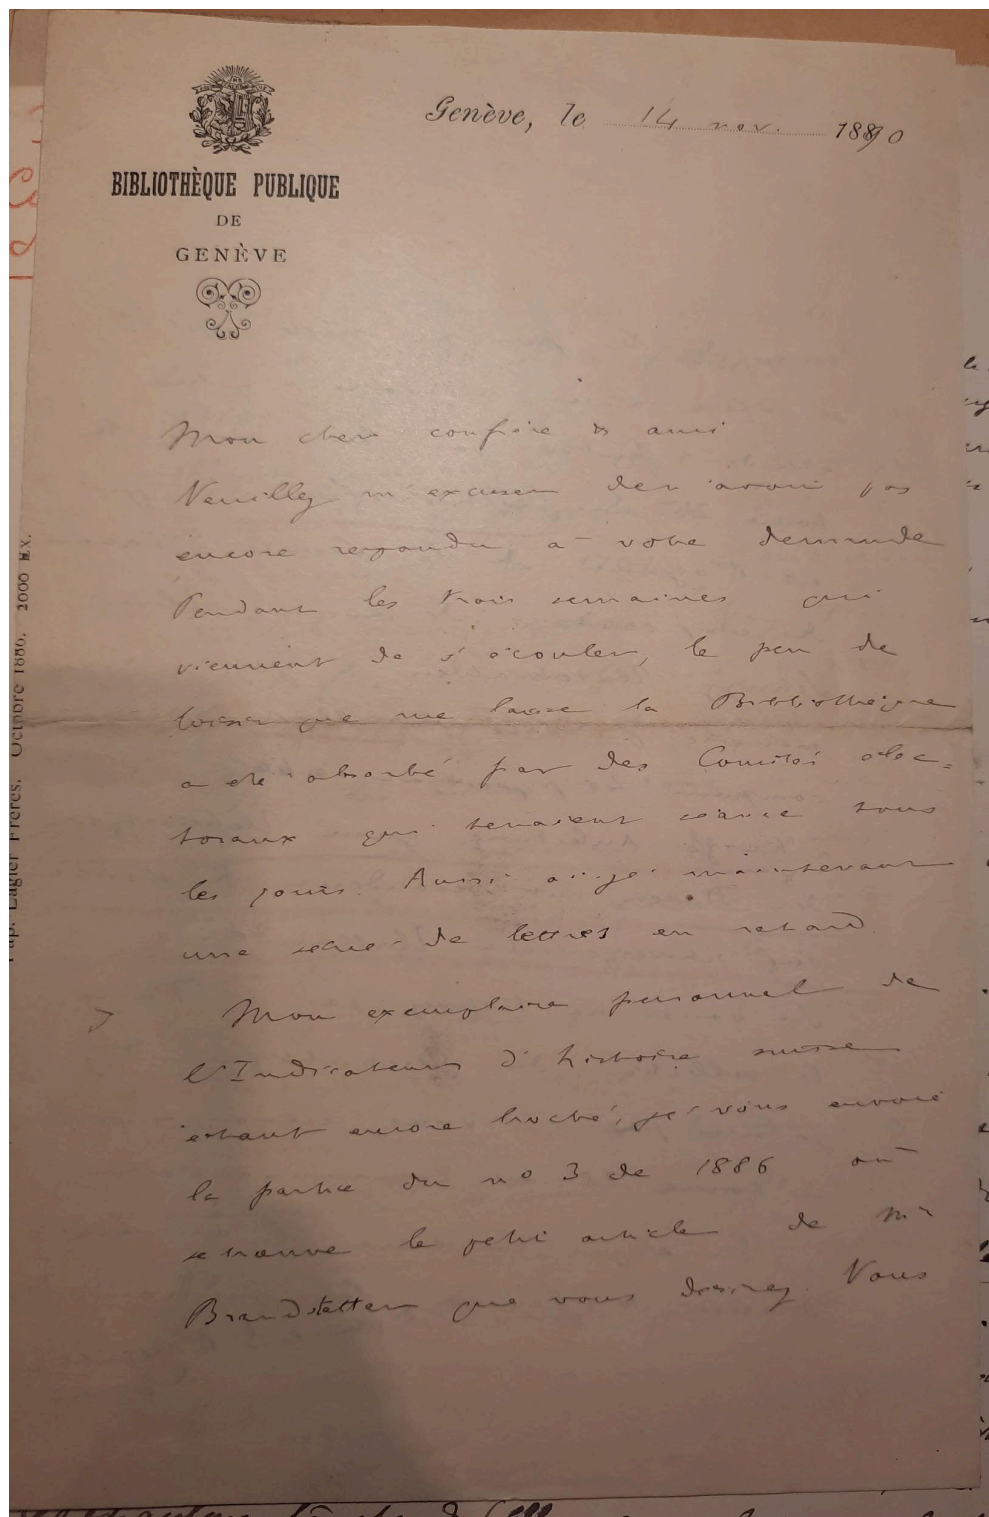 Genève, le 14 nov. 1890
BIBLIOTHÈQUE PUBLIQUE
DE
GENÈVE
Mon cher confrère & ami
Veuillez m'excuser de n'avoir pas
encore repondu à votre demande
Pendant les trois semaines qui
viennent de s'écouler, le peu de
loisir que me laisse la Bibliothèque
a été absorbé par des Comités élec=
toraux qui tenaient séance tous
les jours. Aussi ai-je maintenant
une série de lettres en retard.
Mon exemplaire personnel de
l'Indicateur d'histoire suisse
étant encore broché, je vous envoie
la partie du nº 3 de 1886 où
se trouve le petit article de Mr
Brandstetter que vous désirez. Vous
Pap. Lagier Frères. Octobre 1886. 2000 EX.